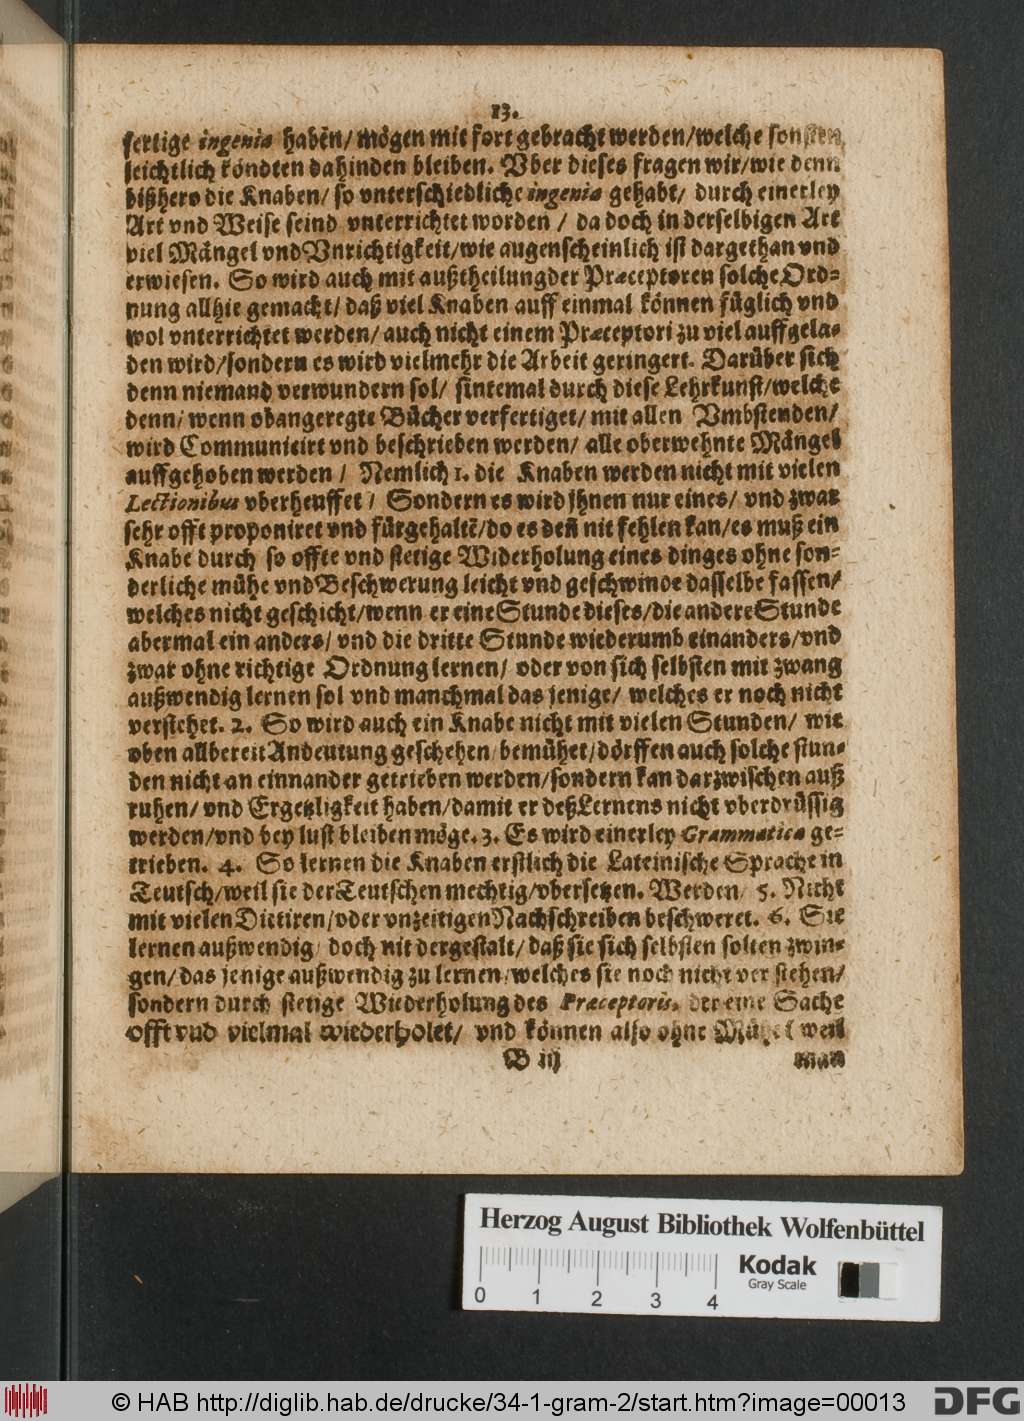 13.
fertige ingenia habẽn/ mögen mit fort gebracht werden/welche sonsten
leichtlich köndten dahinden bleiben. Vber dieses fragen wir/wie denn
bißhero die Knaben/ so vnterschiedliche ingenia gehabt/ durch einerley
Art vnd Weise seind vnterrichtet worden / da doch in derselbigen Art
viel Mängel vnd Vnrichtigkeit/wie augenscheinlich ist dargethan vnd
erwiesen. So wird auch mit außtheilung der Præceptoren solche Ord-
nung allhie gemacht/ daß viel Knaben auff einmal können füglich vnd
wol vnterrichtet werden/ auch nicht einem Præceptori zu viel auffgela-
den wird/sondern es wird vielmehr die Arbeit geringert. Darüber sich
denn niemand verwundern sol/ sintemal durch diese Lehrkunst/welche
denn/ wenn obangeregte Bücher verfertiget/ mit allen Vmbstenden/
wird Communicirt vnd beschrieben werden/ alle oberwehnte Mängel
auffgehoben werden / Nemlich 1. die Knaben werden nicht mit vielen
Lectionibus vberheuffet / Sondern es wird jhnen nur eines/ vnd zwar
sehr offt proponiret vnd fürgehaltẽ/do es deñ nit fehlen kan/es muß ein
Knabe durch so offte vnd stetige Widerholung eines dinges ohne son-
derliche mühe vnd Beschwerung leicht vnd geschwinde dasselbe fassen/
welches nicht geschicht/wenn er eine Stunde dieses/die andere Stunde
abermal ein anders/ vnd die dritte Stunde wiederumb ein anders/vnd
zwar ohne richtige Ordnung lernen/ oder von sich selbsten mit zwang
außwendig lernen sol vnd manchmal das jenige/ welches er noch nicht
verstehet. 2. So wird auch ein Knabe nicht mit vielen Stunden/ wie
oben allbereit Andeutung geschehen/ bemühet/dörffen auch solche stun-
den nicht an einnander getrieben werden/sondern kan darzwischen auß
ruhen/ vnd Ergetzligkeit haben/damit er deß Lernens nicht vberdrüssig
werden/vnd bey lust bleiben möge. 3. Es wird einerley Grammatica ge-
trieben. 4. So lernen die Knaben erstlich die Lateinische Sprache in
Teutsch/weil sie der Teutschen mechtig/vbersetzen. Werden/ 5. Nicht
mit vielen Dictiren/oder vnzeitigen Nachschreiben beschweret. 6. Sie
lernen außwendig/ doch nit dergestalt/ daß sie sich selbsten solten zwin-
gen/ das jenige außwendig zu lernen/welches sie noch nicht verstehen/
sondern durch stetige Wiederholung des Præceptoris, der eine Sache
offt vnd vielmal wiederholet/ vnd können also ohne weil
B iij man
Herzog August Bibliothek Wolfenbüttel
Kodak
Gray Scale
0 1 2 3 4
© HAB http://diglib.hab.de/drucke/34-1-gram-2/start.htm?image=00013 DFG